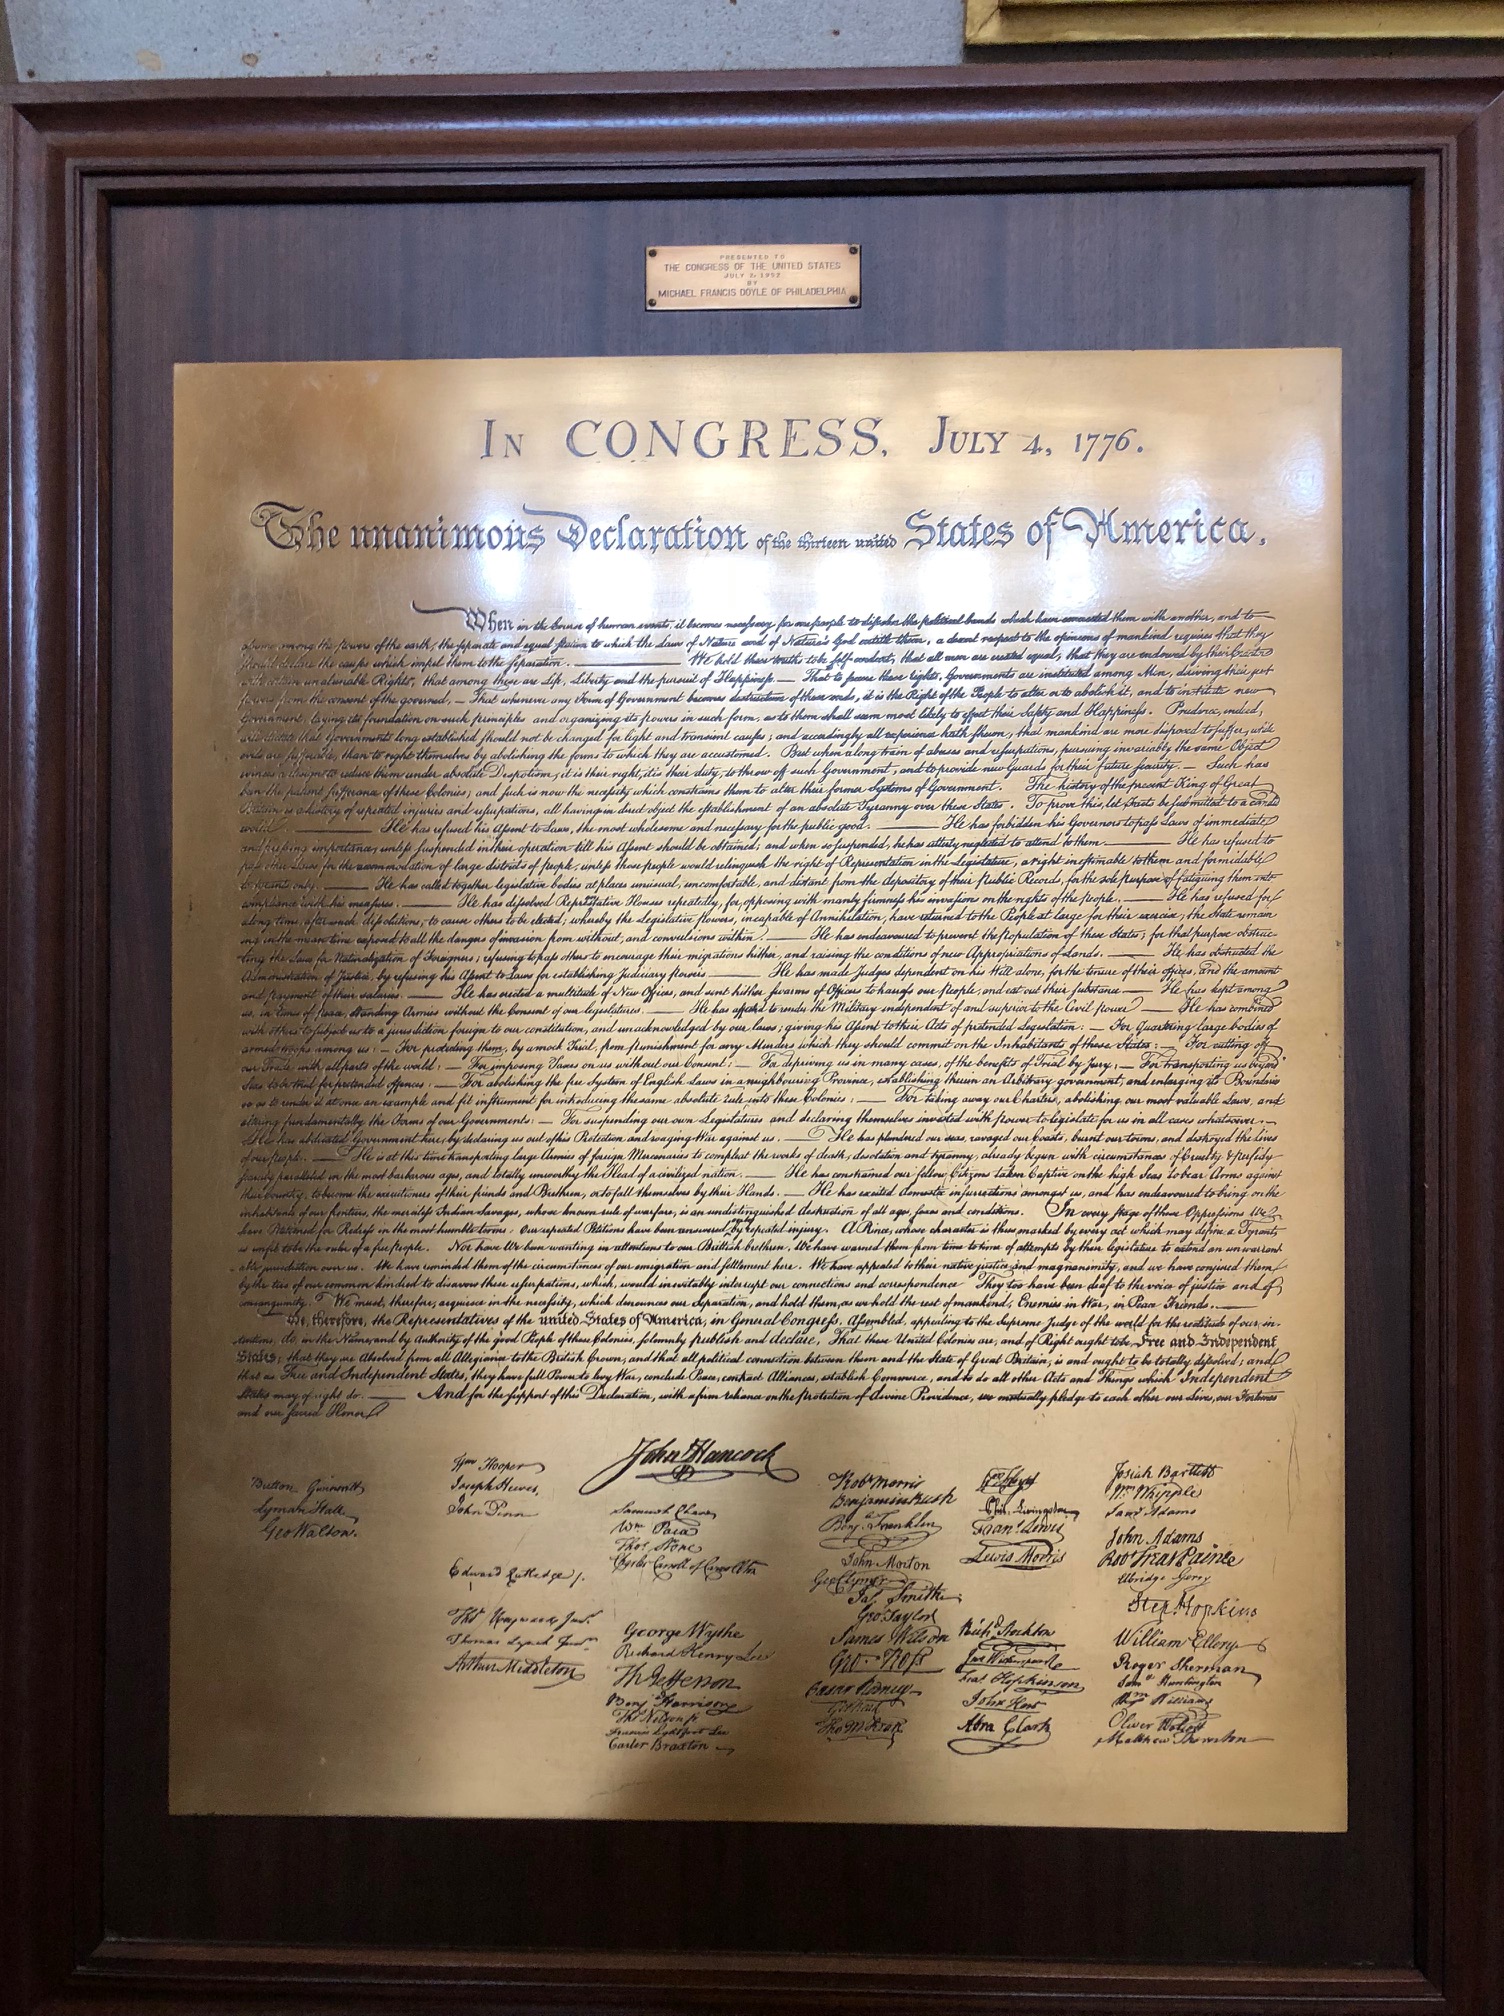 PRESENTED TO
THE CONGRESS OF THE UNITED STATES
JULY 2, 1952
BY
MICHAEL FRANCIS DOYLE OF PHILADELPHIA
IN CONGRESS, JULY 4, 1776.
The unanimous Declaration of the thirteen united States of America,
When in the Course of human events, it becomes necessary for one people to dissolve the political bands which have connected them with another, and to
assume among the powers of the earth, the separate and equal station to which the Laws of Nature and of Nature's God entitle them, a decent respect to the opinions of mankind requires that they
should declare the causes which impel them to the separation. — We hold these truths to be self-evident, that all men are created equal, that they are endowed by their Creator
with certain unalienable Rights, that among these are Life, Liberty and the pursuit of Happiness. — That to secure these rights, Governments are instituted among Men, deriving their just
powers from the consent of the governed, — That whenever any Form of Government becomes destructive of these ends, it is the Right of the People to alter or to abolish it, and to institute new
Government, laying its foundation on such principles and organizing its powers in such form, as to them shall seem most likely to effect their Safety and Happiness. Prudence, indeed,
will dictate that Governments long established should not be changed for light and transient causes; and accordingly all experience hath shewn, that mankind are more disposed to suffer, while
evils are sufferable, than to right themselves by abolishing the forms to which they are accustomed. But when a long train of abuses and usurpations, pursuing invariably the same Object
evinces a design to reduce them under absolute Despotism, it is their right, it is their duty, to throw off such Government, and to provide new Guards for their future security. — Such has
been the patient sufferance of these Colonies; and such is now the necessity which constrains them to alter their former Systems of Government. The history of the present King of Great
Britain is a history of repeated injuries and usurpations, all having in direct object the establishment of an absolute Tyranny over these States. To prove this, let Facts be submitted to a candid
world. — He has refused his Assent to Laws, the most wholesome and necessary for the public good. — He has forbidden his Governors to pass Laws of immediate
and pressing importance, unless suspended in their operation till his Assent should be obtained; and when so suspended, he has utterly neglected to attend to them. — He has refused to
pass other Laws for the accommodation of large districts of people, unless those people would relinquish the right of Representation in the Legislature, a right inestimable to them and formidable
to tyrants only. — He has called together legislative bodies at places unusual, uncomfortable, and distant from the depository of their Public Records, for the sole purpose of fatiguing them into
compliance with his measures. — He has dissolved Representative Houses repeatedly, for opposing with manly firmness his invasions on the rights of the people. — He has refused for
a long time, after such dissolutions, to cause others to be elected; whereby the Legislative powers, incapable of Annihilation, have returned to the People at large for their exercise; the State remain-
ing in the mean time exposed to all the dangers of invasion from without, and convulsions within. — He has endeavoured to prevent the population of these States; for that purpose obstruc-
ting the Laws for Naturalization of Foreigners; refusing to pass others to encourage their migrations hither, and raising the conditions of new Appropriations of Lands. — He has obstructed the
Administration of Justice, by refusing his Assent to Laws for establishing Judiciary powers — He has made Judges dependent on his Will alone, for the tenure of their offices, and the amount
and payment of their salaries. — He has erected a multitude of New Offices, and sent hither swarms of Officers to harrass our people, and eat out their substance — He has kept among
us, in times of peace, Standing Armies without the Consent of our legislatures. — He has affected to render the Military independent of and superior to the Civil power — He has combined
with others to subject us to a jurisdiction foreign to our constitution, and unacknowledged by our laws; giving his Assent to their Acts of pretended Legislation: — For Quartering large bodies of
armed troops among us: — For protecting them, by a mock Trial, from punishment for any Murders which they should commit on the Inhabitants of these States: — For cutting off
our Trade with all parts of the world: — For imposing Taxes on us without our Consent: — For depriving us in many cases, of the benefits of Trial by Jury: — For transporting us beyond
Seas to be tried for pretended offences — For abolishing the free System of English Laws in a neighbouring Province, establishing therein an Arbitrary government, and enlarging its Boundaries
so as to render it at once an example and fit instrument for introducing the same absolute rule into these Colonies: — For taking away our Charters, abolishing our most valuable Laws, and
altering fundamentally the Forms of our Governments: — For suspending our own Legislatures and declaring themselves invested with power to legislate for us in all cases whatsoever. —
He has abdicated Government here, by declaring us out of his Protection and waging War against us. — He has plundered our seas, ravaged our Coasts, burnt our towns, and destroyed the lives
of our people. — He is at this time transporting large Armies of foreign Mercenaries to compleat the works of death, desolation and tyranny, already begun with circumstances of Cruelty & perfidy
scarcely paralleled in the most barbarous ages, and totally unworthy the Head of a civilized nation. — He has constrained our fellow Citizens taken Captive on the high Seas to bear Arms against
their Country, to become the executioners of their friends and Brethren, or to fall themselves by their Hands. — He has excited domestic insurrections amongst us, and has endeavoured to bring on the
inhabitants of our frontiers, the merciless Indian Savages, whose known rule of warfare, is an undistinguished destruction of all ages, sexes and conditions. In every stage of these Oppressions We
have Petitioned for Redress in the most humble terms: Our repeated Petitions have been answered only by repeated injury. A Prince, whose character is thus marked by every act which may define a Tyrant,
is unfit to be the ruler of a free people. Nor have We been wanting in attentions to our Brittish brethren. We have warned them from time to time of attempts by their legislature to extend an unwarrant-
able jurisdiction over us. We have reminded them of the circumstances of our emigration and settlement here. We have appealed to their native justice and magnanimity, and we have conjured them
by the ties of our common kindred to disavow these usurpations, which, would inevitably interrupt our connections and correspondence They too have been deaf to the voice of justice and of
consanguinity. We must, therefore, acquiesce in the necessity, which denounces our Separation, and hold them, as we hold the rest of mankind, Enemies in War, in Peace Friends. —
We, therefore, the Representatives of the united States of America, in General Congress, Assembled, appealing to the Supreme Judge of the world for the rectitude of our in-
tentions, do, in the Name, and by Authority of the good People of these Colonies, solemnly publish and declare, That these United Colonies are, and of Right ought to be Free and Independent
States; that they are Absolved from all Allegiance to the British Crown, and that all political connection between them and the State of Great Britain, is and ought to be totally dissolved; and
that as Free and Independent States, they have full Power to levy War, conclude Peace, contract Alliances, establish Commerce, and to do all other Acts and Things which Independent
States may of right do. — And for the support of this Declaration, with a firm reliance on the protection of divine Providence, we mutually pledge to each other our Lives, our Fortunes
and our sacred Honor.
Button Gwinnett
Lyman Hall
Geo Walton.
Wm Hooper
Joseph Hewes,
John Penn
Edward Rutledge /.
Thos Heyward Junr.
Thomas Lynch Junr.
Arthur Middleton
John Hancock
Samuel Chase
Wm Paca
Thos Stone
Charles Carroll of Carrollton
George Wythe
Richard Henry Lee
Th Jefferson
Benj Harrison
Thos Nelson jr.
Francis Lightfoot Lee
Carter Braxton
Robt Morris
Benjamin Rush
Benj. Franklin
John Morton
Geo Clymer
Jas. Smith
Geo. Taylor
James Wilson
Geo. Ross
Caesar Rodney
Geo Read
Tho M:Kean
Wm Floyd
Phil. Livingston
Frans. Lewis
Lewis Morris
Richd. Stockton
Jno Witherspoon
Fras. Hopkinson
John Hart
Abra Clark
Josiah Bartlett
Wm. Whipple
Saml Adams
John Adams
Robt Treat Paine
Elbridge Gerry
Step. Hopkins
William Ellery
Roger Sherman
Saml Huntington
Wm. Williams
Oliver Wolcott
Matthew Thornton